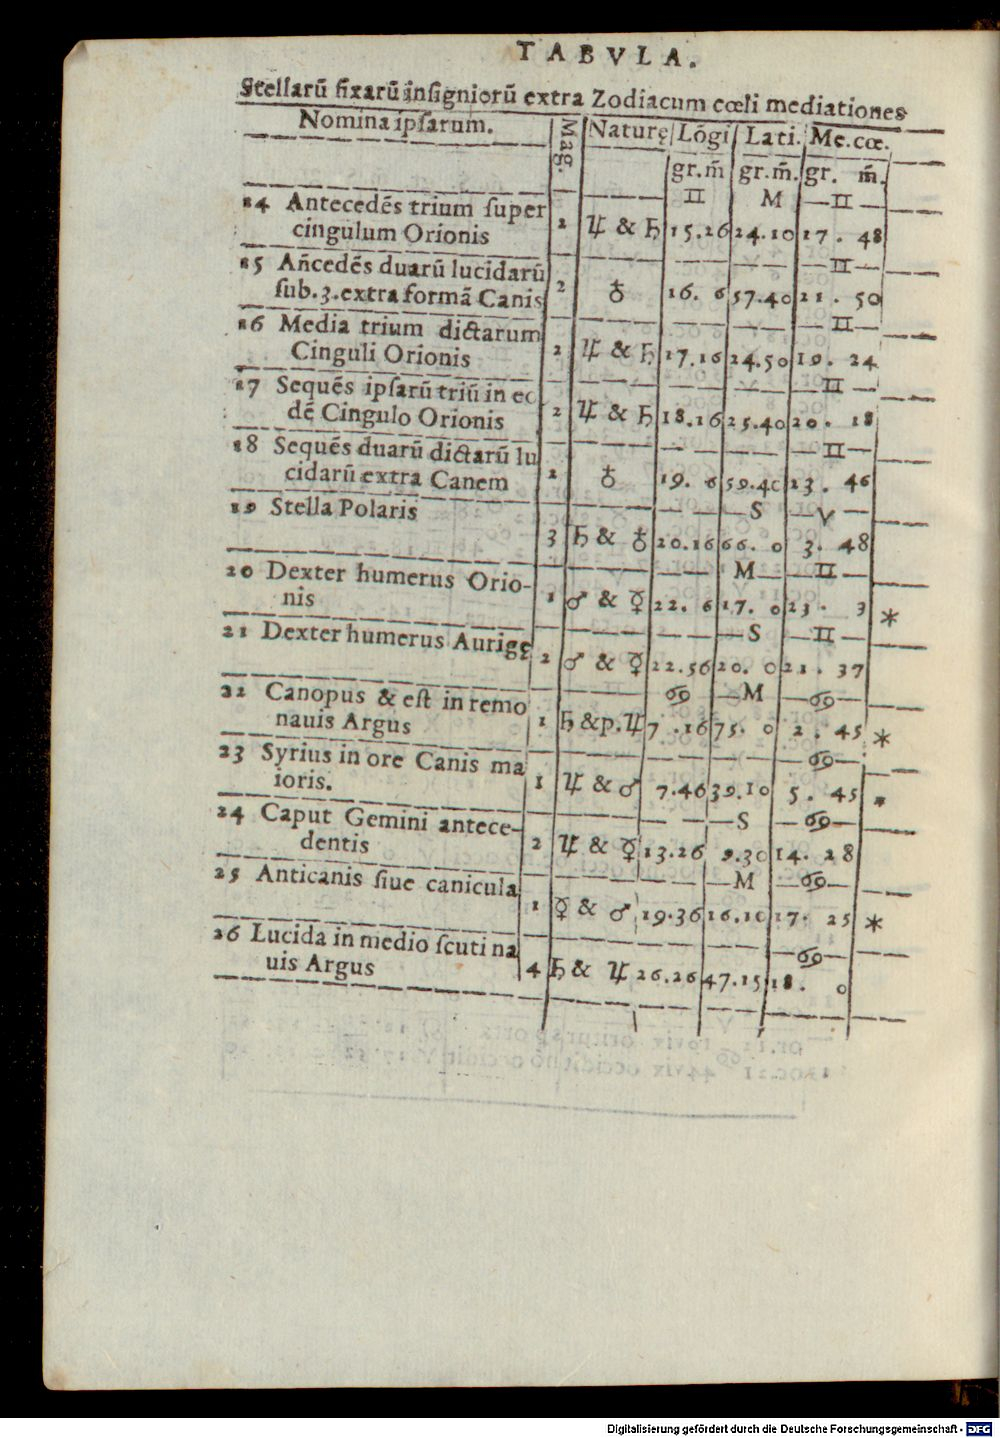 TABVLA.
Stellarū fixarū insigniorū extra Zodiacum cœli mediationes
Nomina ipsarum. Mag. Naturę Lōgi Lati. Me.cœ.
gr.m̄ gr.m̄. gr. m̄.
♊ M ♊
14 Antecedēs trium super
cingulum Orionis 2 ♃ & ♄ 15.26 24.10 17. 48
♊
15 An̄cedēs duarū lucidarū
sub.3.extra formā Canis 2 ♁ 16. 6 57.40 21. 50
♊
16 Media trium dictarum
Cinguli Orionis 2 ♃ & ♄ 17.16 24.50 19. 24
♊
17 Sequēs ipsarū triū in eo
dē Cingulo Orionis 2 ♃ & ♄ 18.16 25.40 20. 18
♊
18 Sequēs duarū dictarū lu
cidarū extra Canem 2 ♁ 19. 6 59.40 23. 46
S ♈
19 Stella Polaris
3 ♄ & ♁ 20.16 66. 0 3. 48
M ♊
20 Dexter humerus Orio-
nis 1 ♂ & ☿ 22. 6 17. 0 23. 3 *
S ♊
21 Dexter humerus Aurigę
2 ♂ & ☿ 22.56 20. 0 21. 37
♋ M ♋
22 Canopus & est in remo
nauis Argus 1 ♄ &p.♃ 7.16 75. 0 2. 45 *
♋
23 Syrius in ore Canis ma
ioris. 1 ♃ & ♂ 7.46 39.10 5. 45 *
S ♋
24 Caput Gemini antece-
dentis 2 ♃ & ☿ 13.26 9.30 14. 28
M ♋
25 Anticanis siue canicula
1 ☿ & ♂ 19.36 16.10 17. 25 *
♋
26 Lucida in medio scuti na
uis Argus 4 ♄ & ♃ 26.26 47.15 18. 0
Digitalisierung gefördert durch die Deutsche Forschungsgemeinschaft - DFG